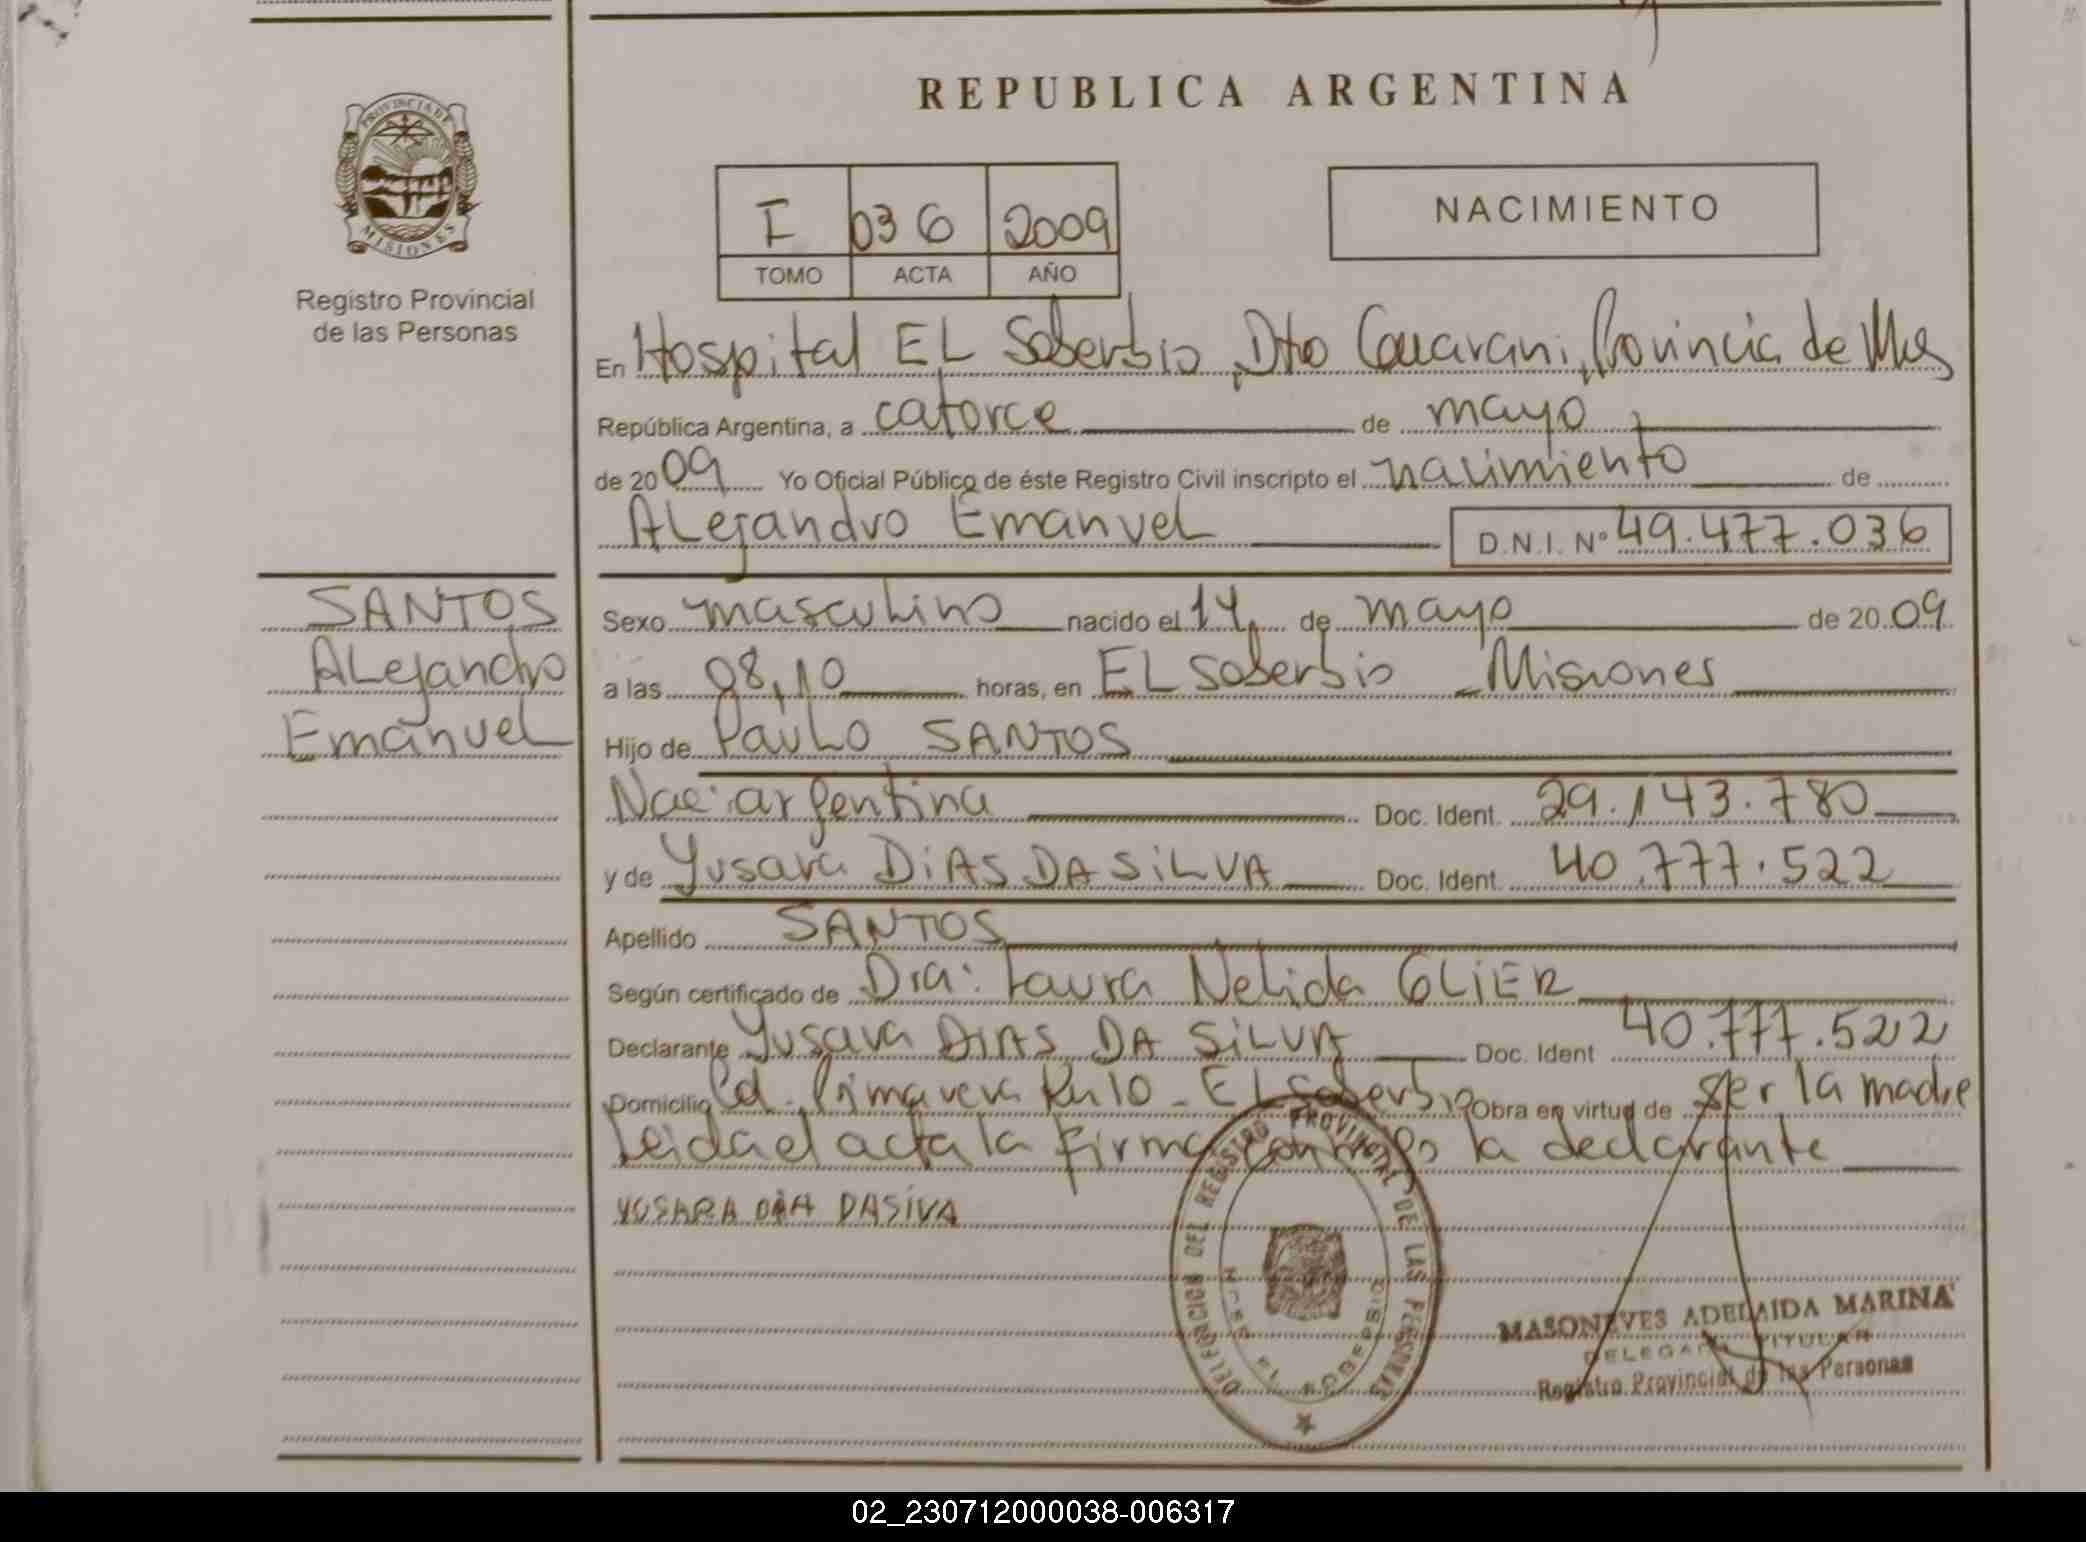 REPUBLICA ARGENTINA
PROVINCIA DE
MISIONES
Registro Provincial
de las Personas
I 036 2009
TOMO ACTA AÑO
NACIMIENTO
En Hospital EL Soberbio, Dto Guarani, Provincia de Mnes
República Argentina, a catorce de mayo
de 2009 Yo Oficial Público de éste Registro Civil inscripto el nacimiento de
ALejandro Emanuel D.N.I. Nº 49.477.036
SANTOS
ALejandro
Emanuel
Sexo masculino nacido el 14 de mayo de 2009
a las 08,10 horas, en EL Soberbio - Misiones
Hijo de Paulo SANTOS
Nac: argentina Doc. Ident. 29.143.780
y de Yusara DiAS DA SiLVA Doc. Ident. 40.777.522
Apellido SANTOS
Según certificado de Dra: Laura Nelida GLiER
Declarante Yusara DIAS DA SiLVA Doc. Ident 40.777.522
Domicilio Cd. Primavera Km 10 - EL Soberbio Obra en virtud de ser la madre
Leida el acta la firma conmigo la declarante
YUSARA DIA DASIVA
DELEGACION DEL REGISTRO PROVINCIAL DE LAS PERSONAS
EL SOBERBIO
MASONEVES ADELAIDA MARINA
DELEGADA TITULAR
Registro Provincial de las Personas
02_230712000038-006317